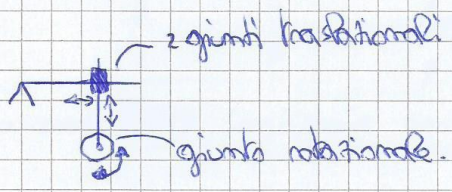 2 giunti traslazionali
giunto rotazionale.